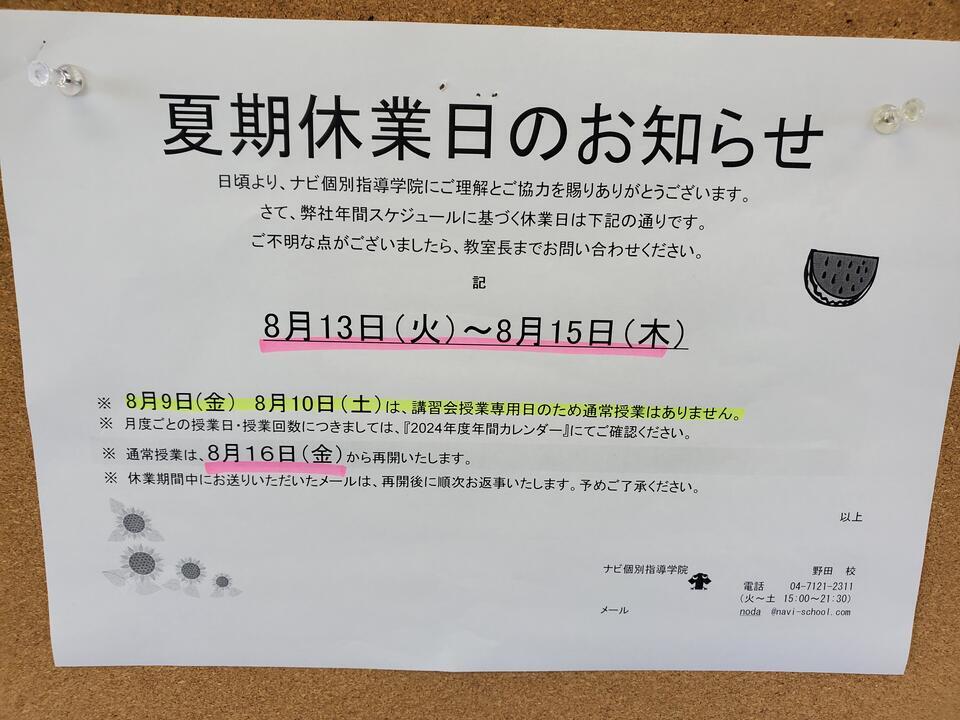 夏期休業日のお知らせ
日頃より、ナビ個別指導学院にご理解とご協力を賜りありがとうございます。
さて、弊社年間スケジュールに基づく休業日は下記の通りです。
ご不明な点がございましたら、教室長までお問い合わせください。
記
8月13日(火)～8月15日(木)
※ 8月9日(金) 8月10日(土)は、講習会授業専用日のため通常授業はありません。
※ 月度ごとの授業日・授業回数につきましては、『2024年度年間カレンダー』にてご確認ください。
※ 通常授業は、8月16日(金)から再開いたします。
※ 休業期間中にお送りいただいたメールは、再開後に順次お返事いたします。予めご了承ください。
以上
ナビ個別指導学院 野田 校
電話 04-7121-2311
(火～土 15:00～21:30)
メール noda @navi-school.com